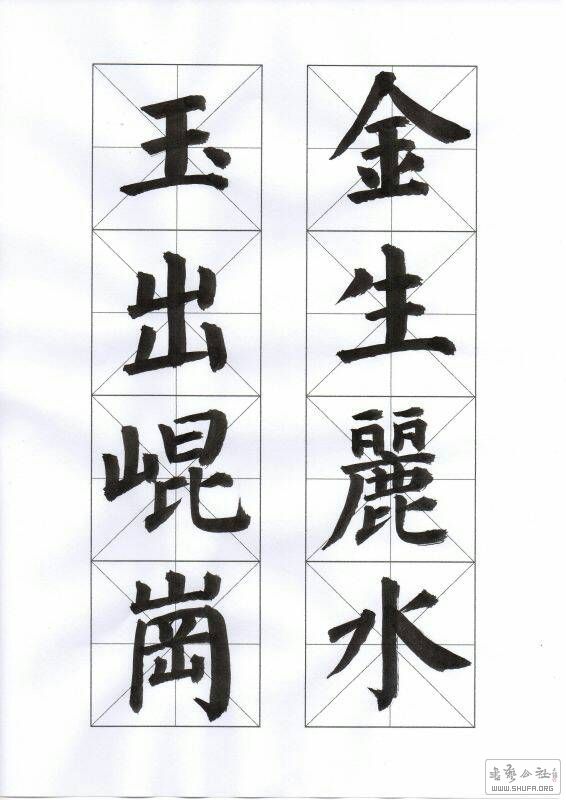 金生麗水
玉出崐崗
书艺公社
WWW.SHUFA.ORG